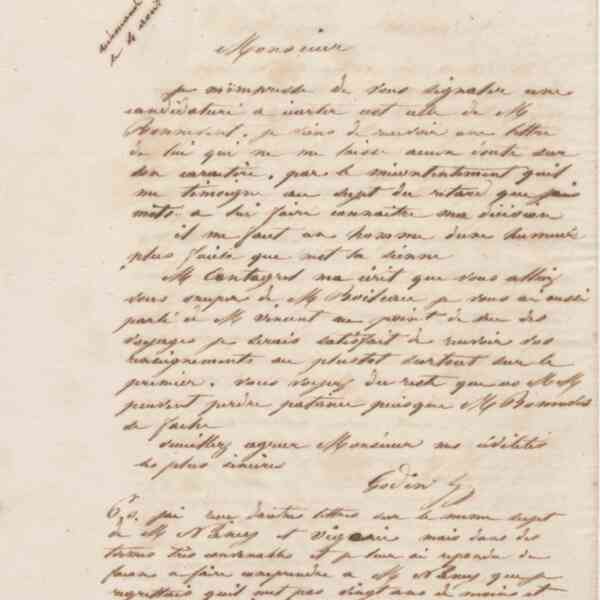 le 4 août
Monsieur
je m'impresse de vous signaler une
candidature a écarter est celle de M
je viens de recevoir une lettre
de lui qui ne me laisse aucun doute sur
son caractère, par le mécontentement quil
me témoigne au sujet du retard que jais
mets a lui faire connaitre ma décision
il me faut un homme dune humeur
plus facile que nest la sienne
M Cantagrel ma écrit que vous alliez
vous occuper de M Boileau je vous ai aussi
parlé de M Vincent au point de vue des
voyages je serais satisfait de recevoir vos
renseignements au plustot surtout sur le
premier. vous voyez du reste que ces MM
peuvent perdre patience puisque M
se fache
veuillez agréer Monsieur mes civilités
les plus sincères
Godin
P.S. jai reçu dautres lettres sur le meme sujet
de M et mais dans des
termes très convenables et je leur ai repondu de
façon a faire comprendre a M que je
regrettais quil nait pas vingt ans de moins et